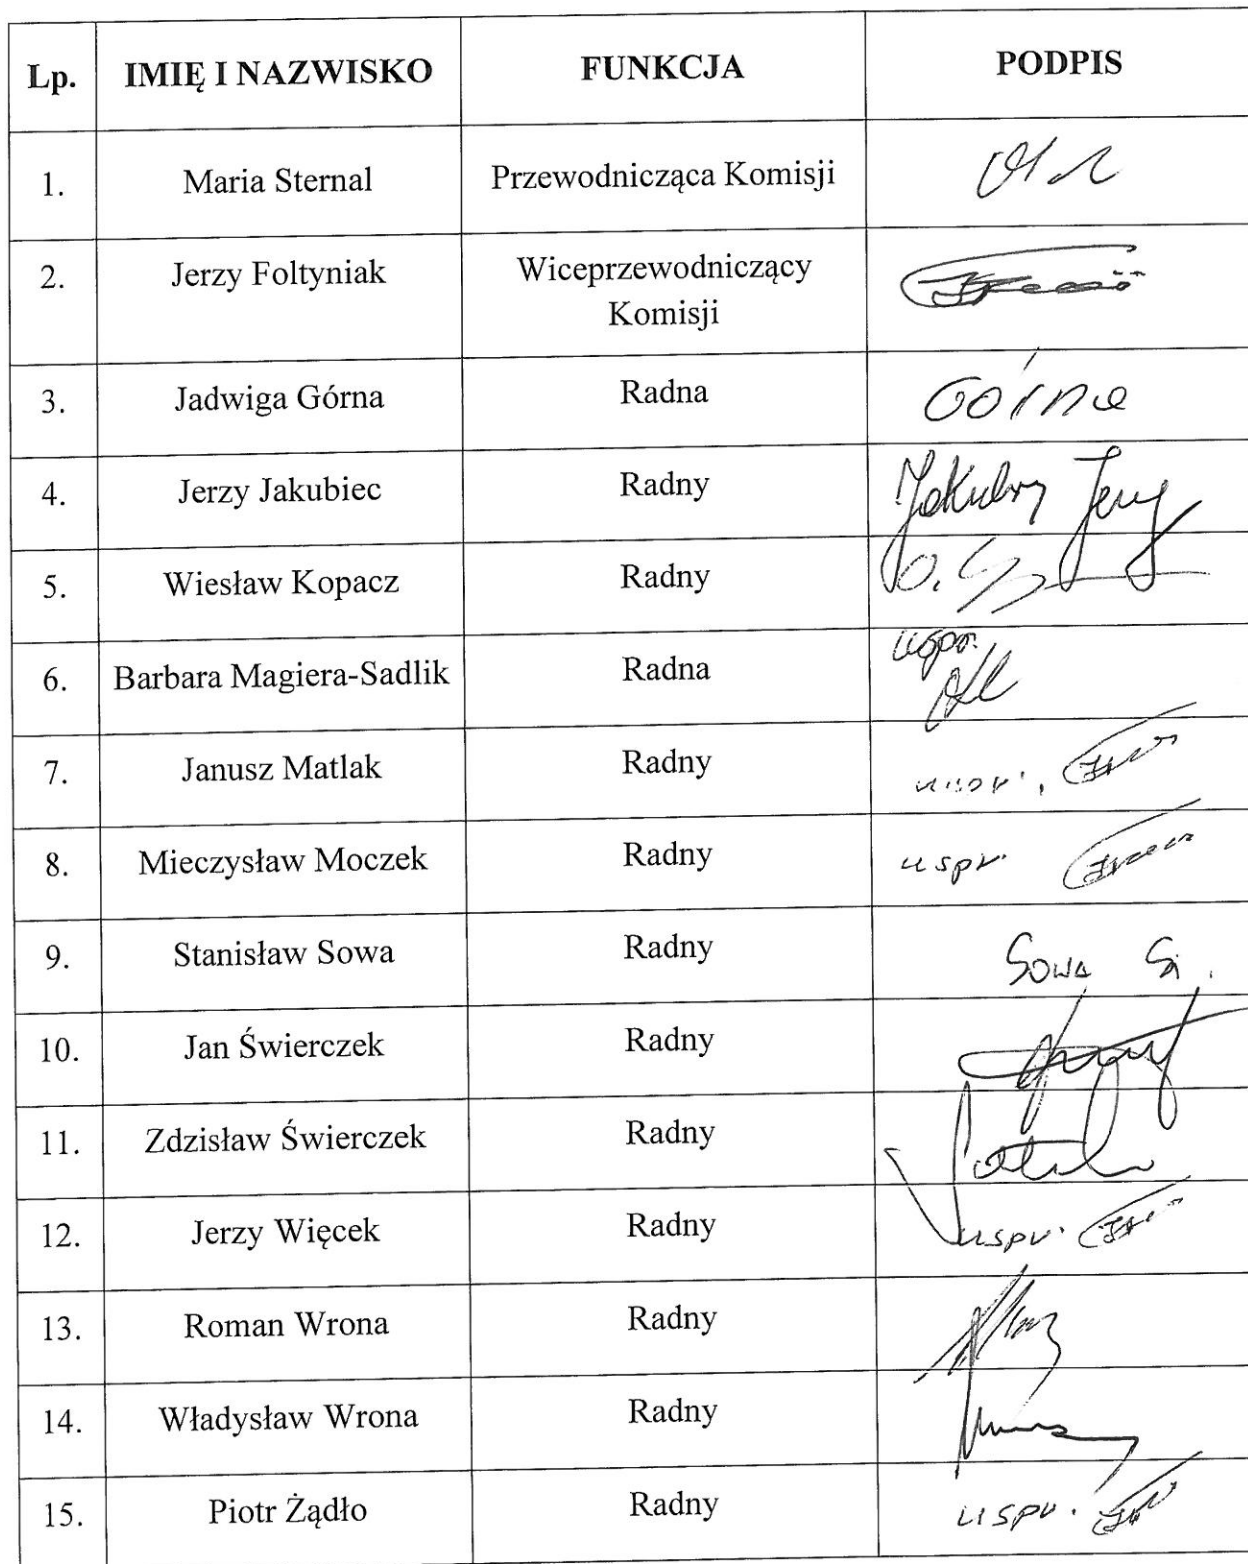 Lp. IMIĘ I NAZWISKO FUNKCJA PODPIS
1. Maria Sternal Przewodnicząca Komisji
2. Jerzy Foltyniak Wiceprzewodniczący
Komisji
3. Jadwiga Górna Radna Górna
4. Jerzy Jakubiec Radny Jerzy
5. Wiesław Kopacz Radny
6. Barbara Magiera-Sadlik Radna uspr.
7. Janusz Matlak Radny
8. Mieczysław Moczek Radny uspr.
9. Stanisław Sowa Radny Sowa
10. Jan Świerczek Radny
11. Zdzisław Świerczek Radny
12. Jerzy Więcek Radny uspr.
13. Roman Wrona Radny
14. Władysław Wrona Radny
15. Piotr Żądło Radny uspr.